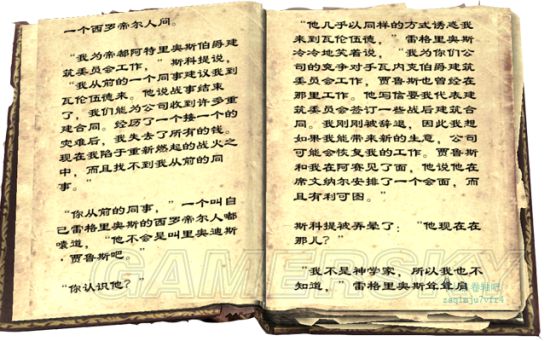 一个西罗帝尔人问。
“我为帝都阿特里奥斯伯爵建
筑委员会工作，”斯科提说，
“我从前的一个同事建议我到
瓦伦伍德来。他说战事结束
了，我们能为公司收到许多重
建合同。经历了一个接一个的
灾难后，我失去了所有的钱。
现在我陷于重新燃起的战火之
中，而且找不到我从前的同
事。”
“你从前的同事，”一个叫自
己雷格里奥斯的西罗帝尔人嘟
囔道，“他不会是叫里奥迪斯
·贾鲁斯吧。”
“你认识他？”
“他几乎以同样的方式诱惑我
来到瓦伦伍德，”雷格里奥斯
冷冷地笑着说，“我为你们公
司的竞争对手瓦内克伯爵建筑
委员会工作，贾鲁斯也曾经在
那里工作。他写信要我代表建
筑委员会签订一些战后建筑合
同。我刚刚被辞退，因此我想
如果我能带来新的生意，公司
可能会恢复我的工作。贾鲁斯
和我在阿赛见了面，他说他在
席文纳尔安排了一个会面，而
且有利可图。”
斯科提被弄晕了：“他现在在
那儿？”
“我不是神学家，所以我也不
知道，”雷格里奥斯耸耸肩
GAMERSKY
卷轴吧
zaqimju7vfr4